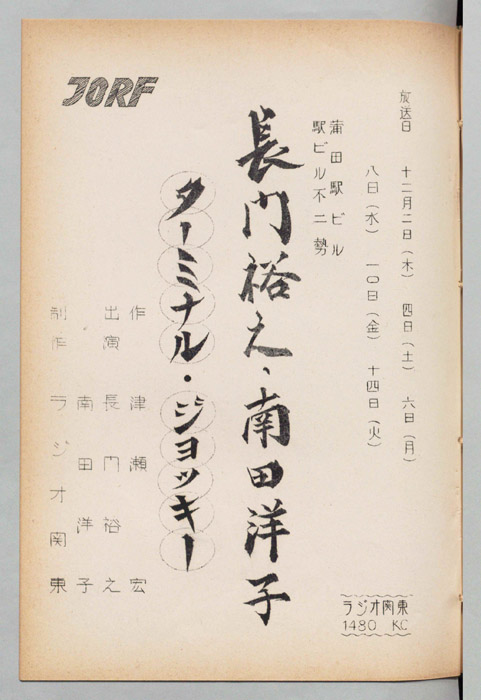 JORF
放送日 十二月二日(木) 四日(土) 六日(月)
八日(水) 一〇日(金) 十四日(火)
蒲田駅ビル
駅ビル不二勢
長門裕之、南田洋子
ターミナル・ジョッキー
作 津瀬宏
出演 長門裕之
南田洋子
制作 ラジオ関東
ラジオ関東
1480 KC